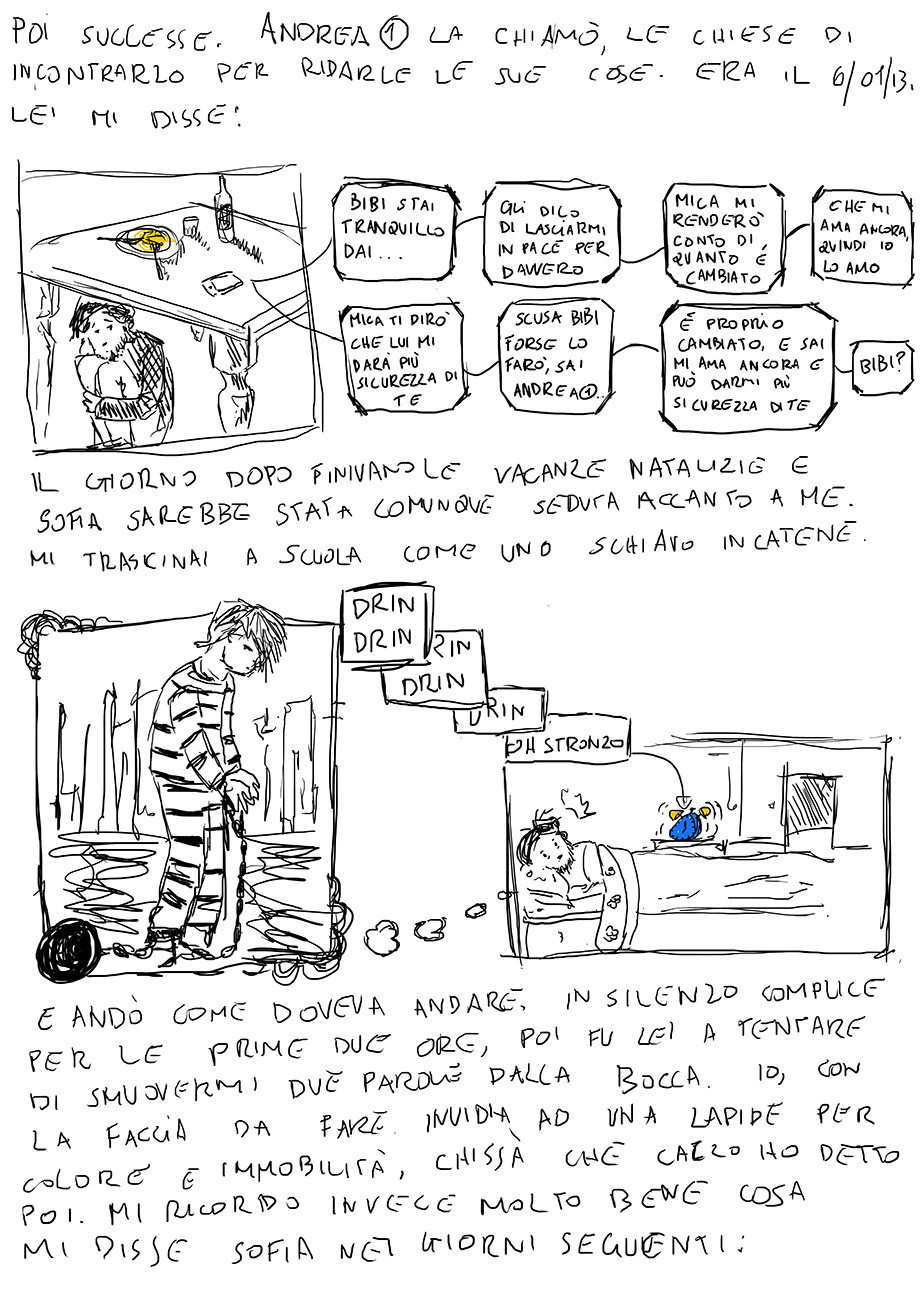 POI SUCCESSE. ANDREA ① LA CHIAMÒ, LE CHIESE DI
INCONTRARLO PER RIDARLE LE SUE COSE. ERA IL 6/01/13.
LEI MI DISSE:
BIBI STAI
TRANQUILLO
DAI...
GLI DICO
DI LASCIARMI
IN PACE PER
DAVVERO
MICA MI
RENDERÒ
CONTO DI
QUANTO È
CAMBIATO
CHE MI
AMA ANCORA,
QUINDI IO
LO AMO
MICA TI DIRÒ
CHE LUI MI
DARÀ PIÙ
SICUREZZA DI
TE
SCUSA BIBI
FORSE LO
FARÒ, SAI
ANDREA ①..
È PROPRIO
CAMBIATO, E SAI
MI AMA ANCORA E
PUÒ DARMI PIÙ
SICUREZZA DI TE
BIBI?
IL GIORNO DOPO FINIVANO LE VACANZE NATALIZIE E
SOFIA SAREBBE STATA COMUNQUE SEDUTA ACCANTO A ME.
MI TRASCINAI A SCUOLA COME UNO SCHIAVO IN CATENE.
DRIN
DRIN
RIN
DRIN
DRIN
OH STRONZO
E ANDÒ COME DOVEVA ANDARE. IN SILENZO COMPLICE
PER LE PRIME DUE ORE, POI FU LEI A TENTARE
DI SMUOVERMI DUE PAROLE DALLA BOCCA. IO, CON
LA FACCIA DA FARE INVIDIA AD UNA LAPIDE PER
COLORE E IMMOBILITÀ, CHISSÀ CHE CAZZO HO DETTO
POI. MI RICORDO INVECE MOLTO BENE COSA
MI DISSE SOFIA NEI GIORNI SEGUENTI: